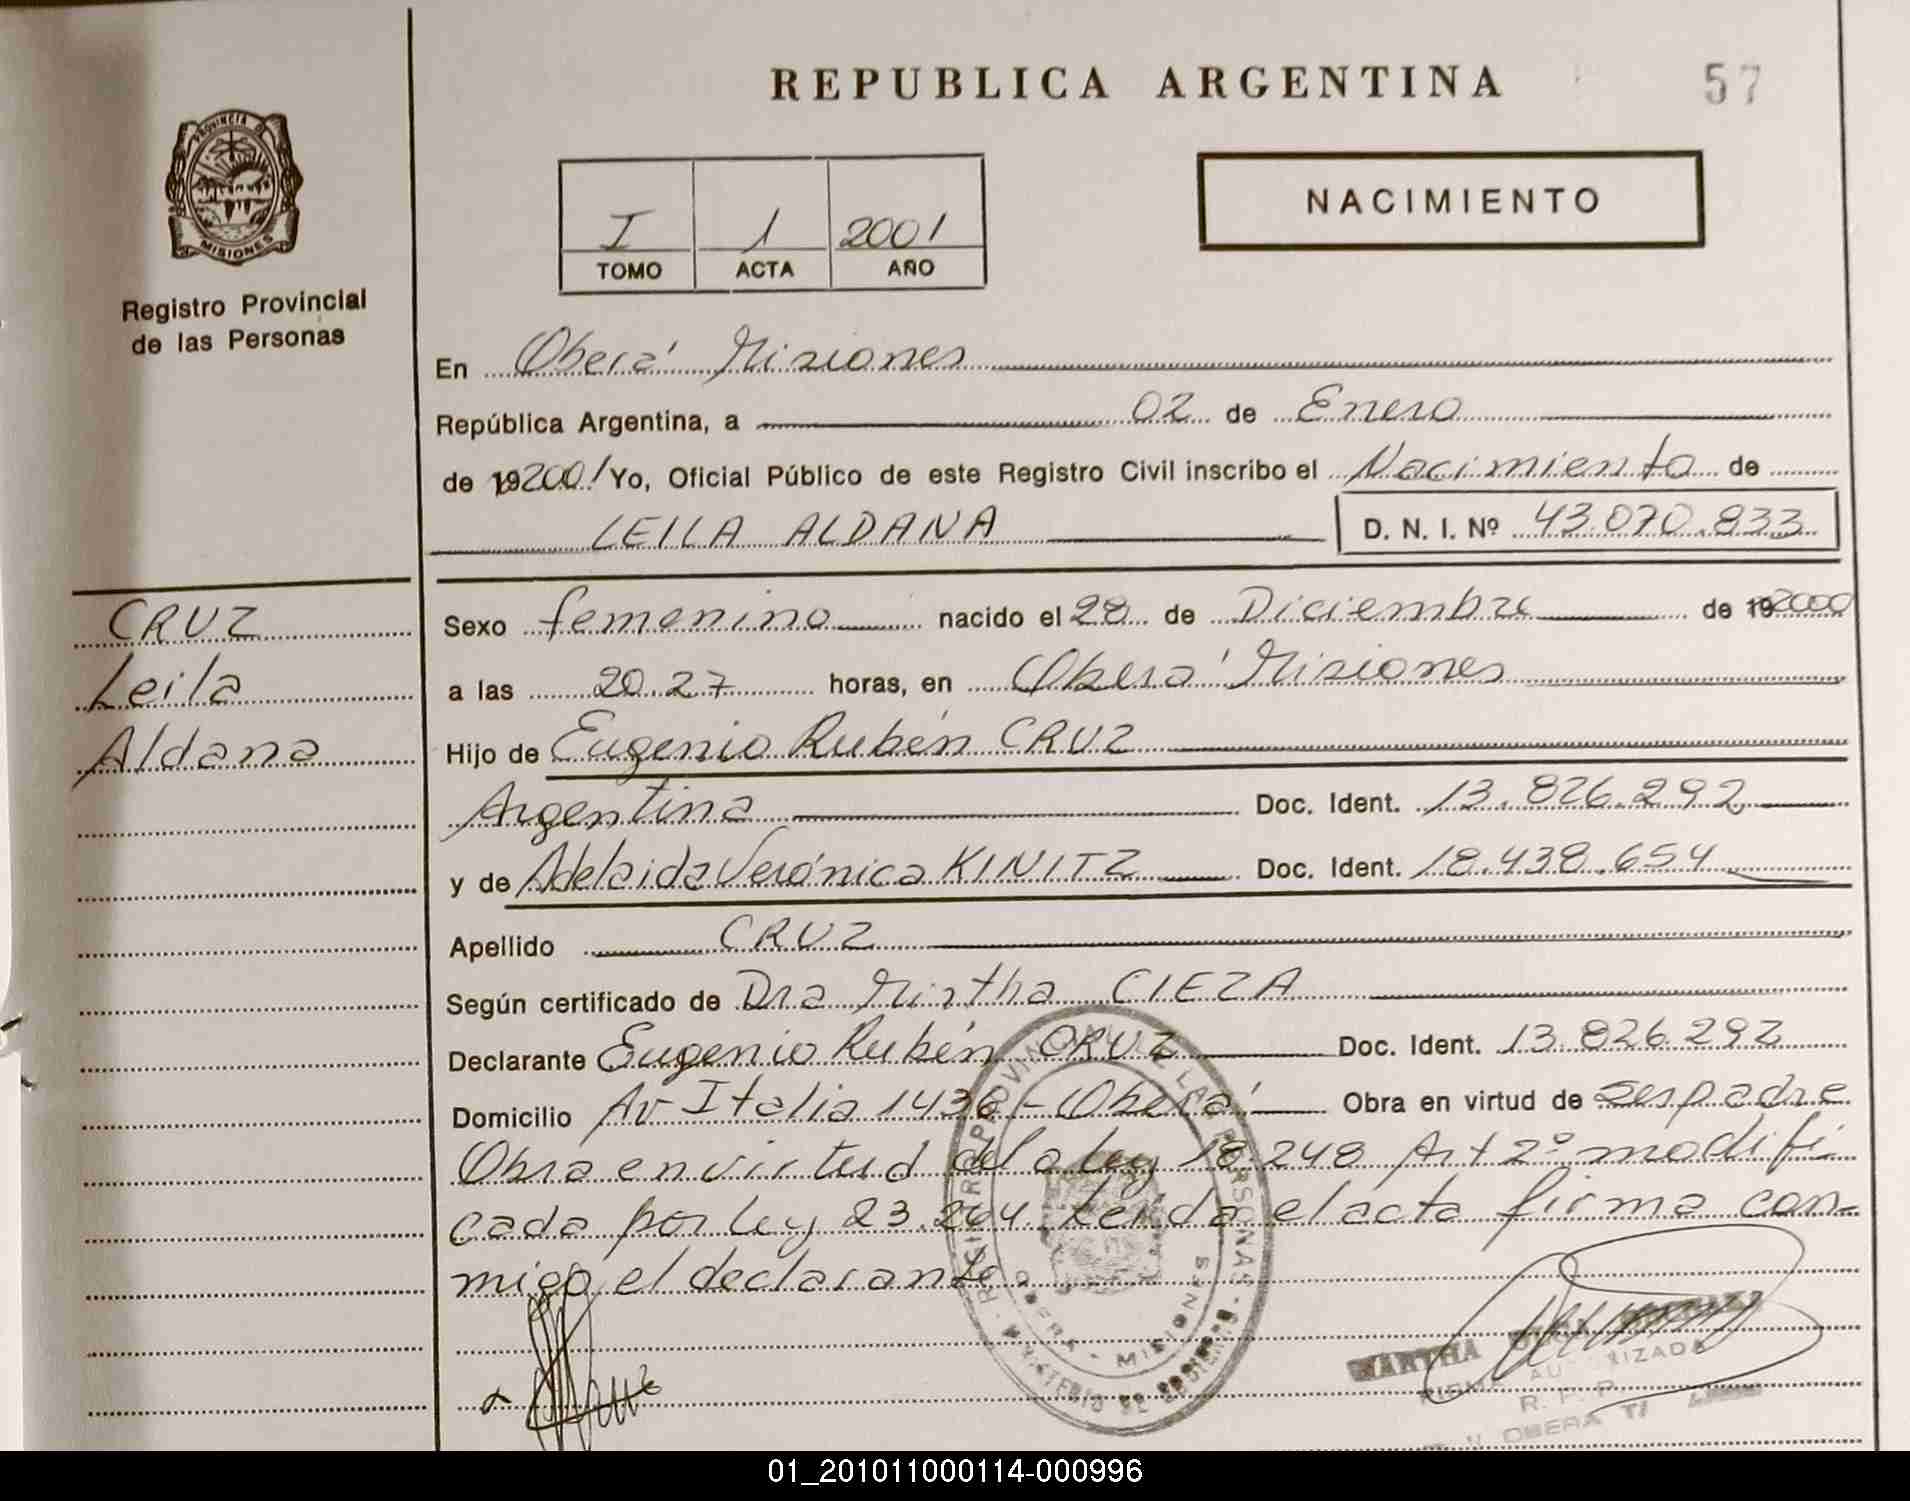 REPUBLICA ARGENTINA
57
PROVINCIA DE
MISIONES
Registro Provincial
de las Personas
I 1 2001
TOMO ACTA AÑO
NACIMIENTO
En Oberá Misiones
República Argentina, a 02 de Enero
de 192001 Yo, Oficial Público de este Registro Civil inscribo el Nacimiento de
LEILA ALDANA D. N. I. Nº 43.070.833
CRUZ
Leila
Aldana
Sexo femenino nacido el 28 de Diciembre de 192000
a las 20.27 horas, en Oberá Misiones
Hijo de Eugenio Rubén CRUZ
Argentina Doc. Ident. 13.826.292
y de Adelaida Verónica KINITZ Doc. Ident. 18.438.654
Apellido CRUZ
Según certificado de Dra Mirtha CIEZA
Declarante Eugenio Rubén CRUZ Doc. Ident. 13.826.292
Domicilio Av Italia 1436 - Oberá Obra en virtud de ser padre
Obra en virtud de la ley 18.248 Art 2º modifi-
cada por ley 23.264 Leída el acta firma con-
migo el declarante.
REGISTRO PROVINCIAL DE LAS PERSONAS
OBERA - MISIONES
MARTHA
FIRMA AUTORIZADA
R. P. P.
OBERA
01_201011000114-000996